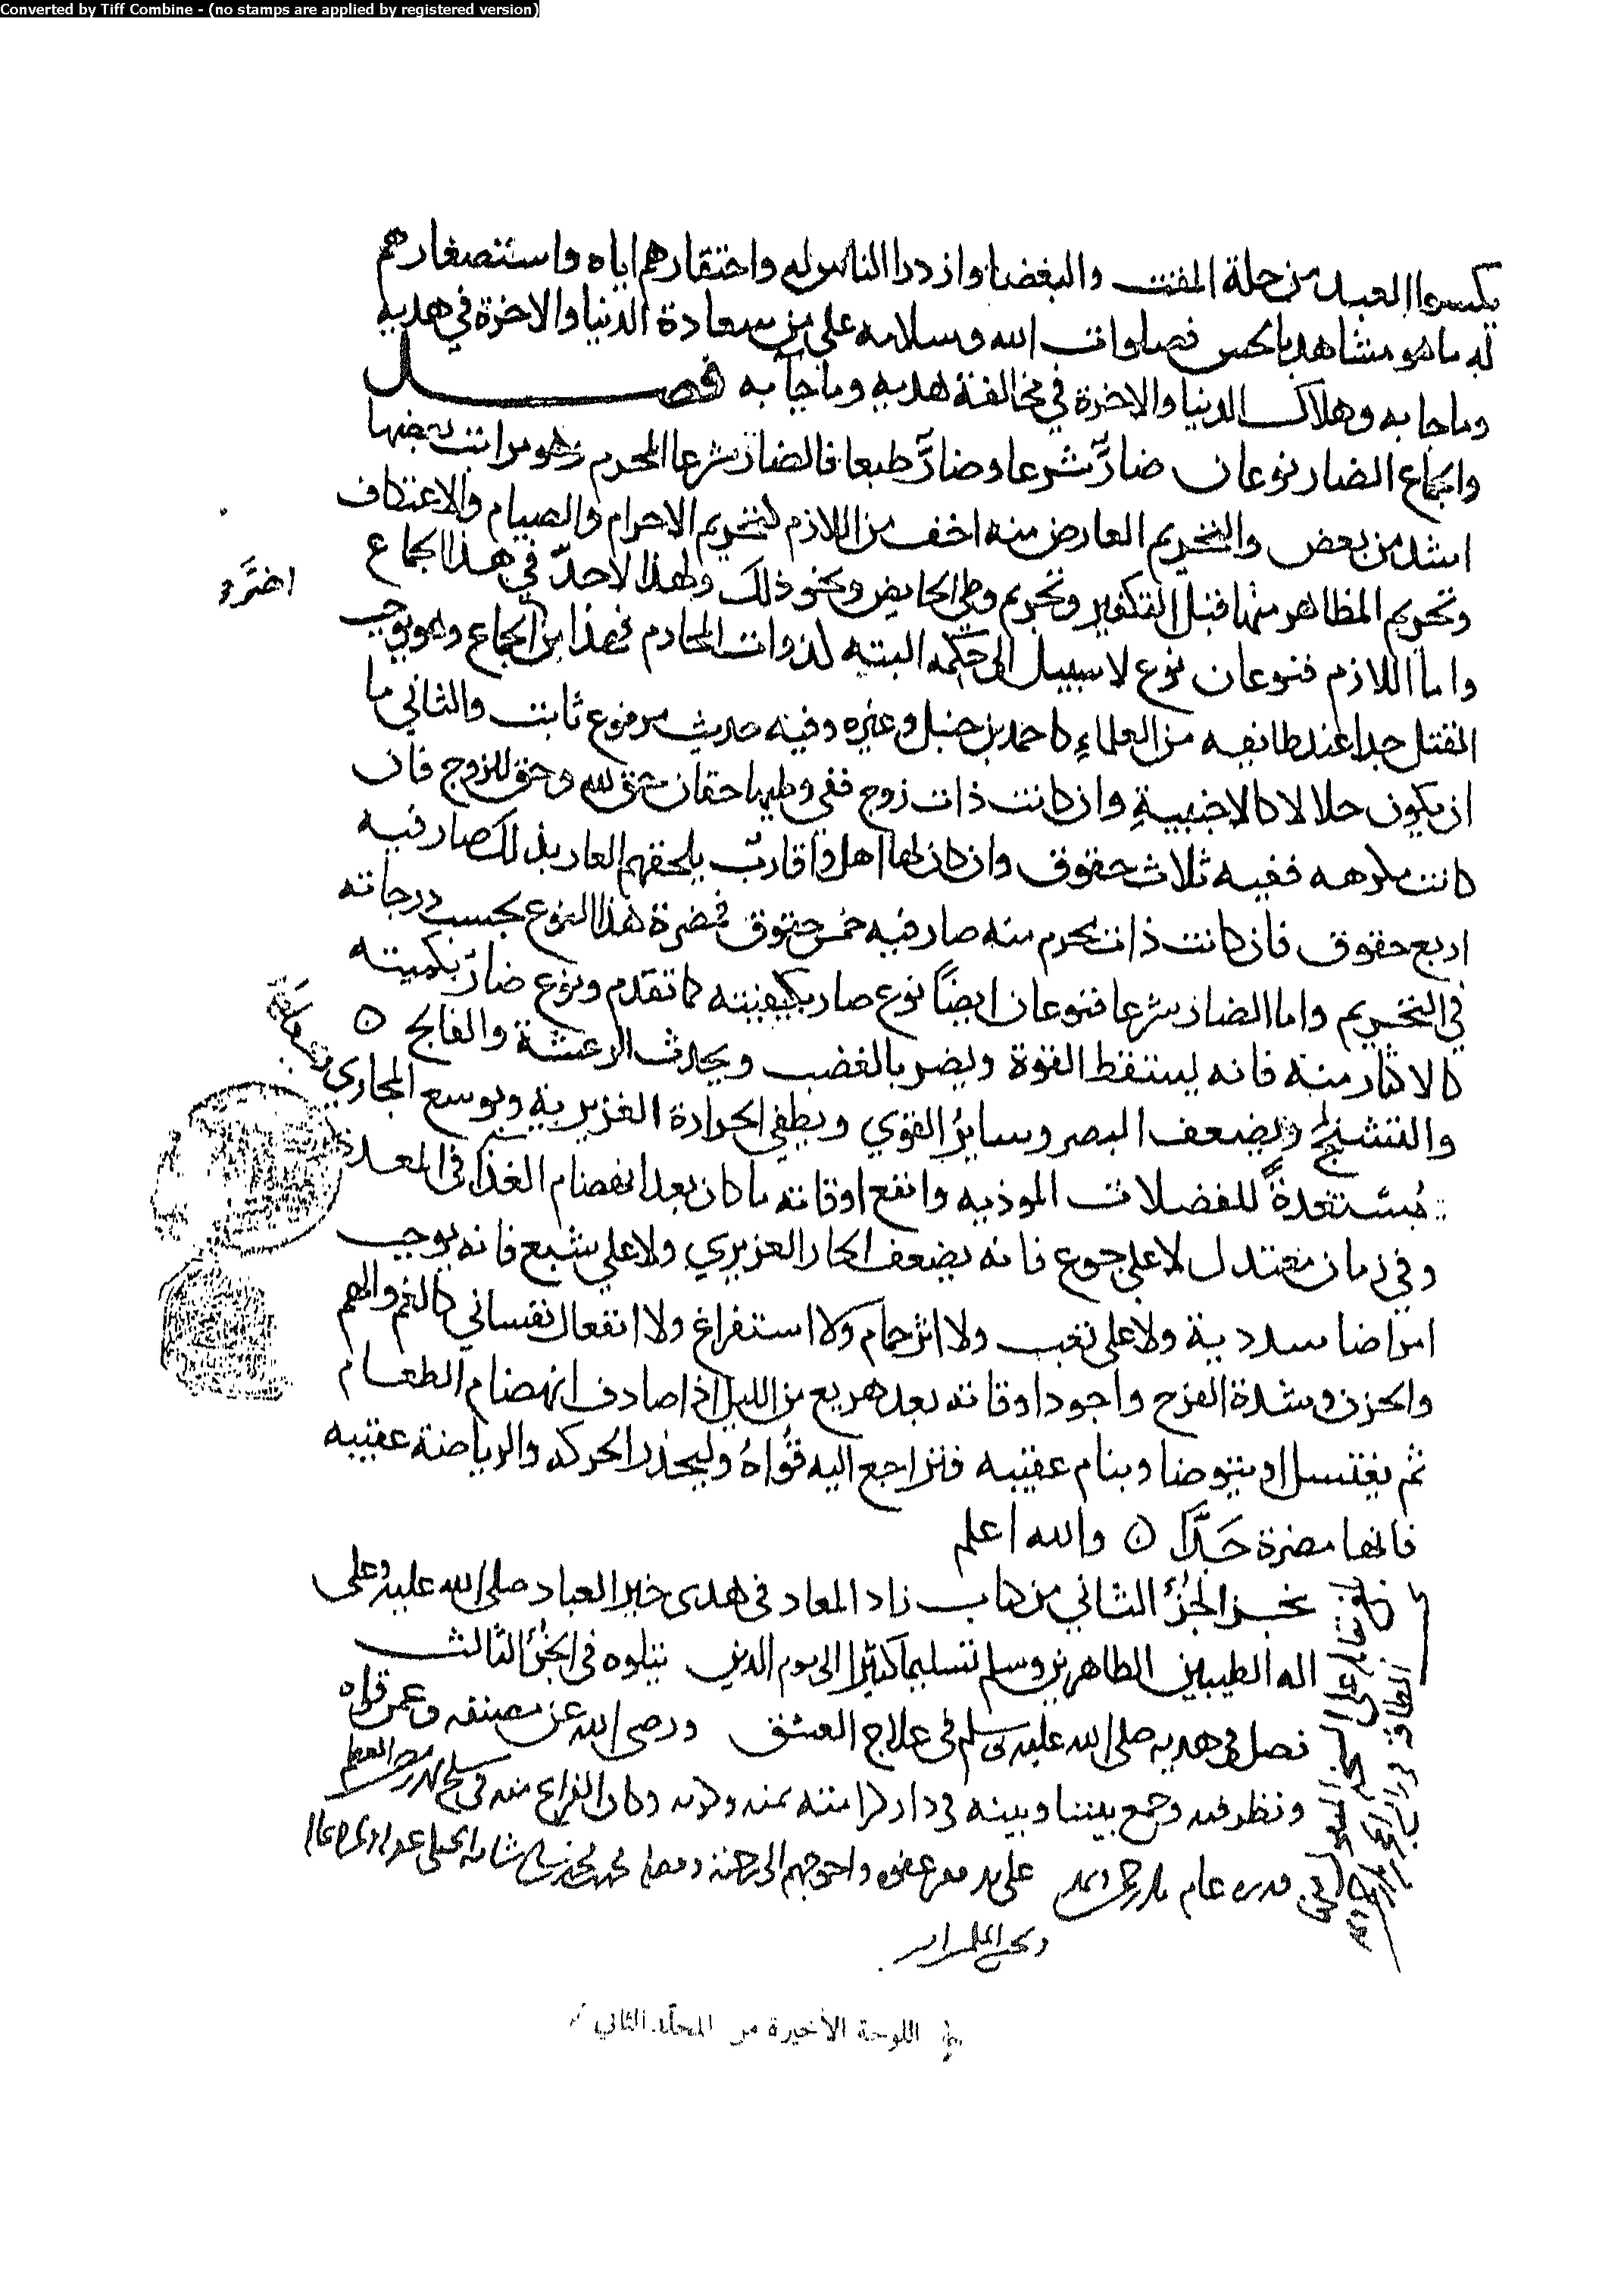 Converted by Tiff Combine - (no stamps are applied by registered version)
يكسوا العبد من حلة المقت والبغضا وازدرا الناس له واحتقارهم اياه واستصغارهم
له ما هو مشاهد بالحس فصلوات الله وسلامه على من سعادة الدنيا والاخرة في هديه
وما جا به وهلاك الدنيا والاخرة في مخالفة هديه وما جآ به فصل
والجماع الضار نوعان ضارٌّ شرعا وضارٌّ طبعا فالضار شرعا المحرم وهو مراتب بعضها
اشد من بعض والتحريم العارض منه اخف من اللازم كتحريم الاحرام والصيام والاعتكاف
وتحريم المظاهر منها قبل التكفير وتحريم وطي الحايض ونحو ذلك ولهذا لا حدّ في هذا الجماع
واما اللازم فنوعان نوع لا سبيل الى حكمه البته كذوات المحارم فهذا من الجماع وهو يوجب
القتل حدا عند طايفه من العلماء كاحمد بن حنبل وغيره وفيه حديث مرفوع ثابت والثاني ما
ان يكون حلالا كالاجنبية وان كانت ذات زوج ففي وطيها حقان حق لله وحق للزوج فان
كانت مكرهه ففيه ثلاث حقوق وان كان لها اهل واقارب يلحقهم العار بذلك صار فيه
اربع حقوق فان كانت ذات محرم منه صار فيه خمس حقوق فمضرة هذا النوع بحسب درجاته
في التحريم واما الضار شرعا فنوعان ايضاً نوع ضار بكيفيته كما تقدم ونوع ضارّ بكميته
كالاكثار منه فانه يسقط القوة ويضر بالعصب ويحدث الرعشة والفالج
والتشنج ويضعف البصر وساير القوي ويطفي الحرارة الغريزيه ويوسع المجاري
مستعدةً للفضلات الموذيه وانفع اوقاته ما كان بعد انهضام الغذا في المعدة
وفي زمان معتدل لا على جوع فانه يضعف الحار الغريزي ولا على شبع فانه يوجب
امراضا سددية ولا على تعب ولا اثر حمام ولا استفراغ ولا انفعال نفساني كالغم والهم
والحزن وشدة الفرح واجود اوقاته بعد هزيع من الليل اذا صادف انهضام الطعام
ثم يغتسل او يتوضا وينام عقيبه فتراجع اليه قواه وليحذر الحركه والرياضة عقيبه
فانها مضرة جدّا ه والله اعلم
نجز الجزء الثاني من كتاب زاد المعاد في هدى خير العباد صلى الله عليه وعلى
اله الطيبين الطاهرين وسلم تسليما كثيرا الى يوم الدين يتلوه في الجزء الثالث
فصل في هديه صلى الله عليه وسلم في علاج العشق ورضى الله عن مصنفه وعمن قراه
ونظر فيه وجمع بيننا وبينه في دار كرامته بمنه وكرمه وكان الفراغ منه في سلخ
اللوحة الأخيرة من المجلد الثاني